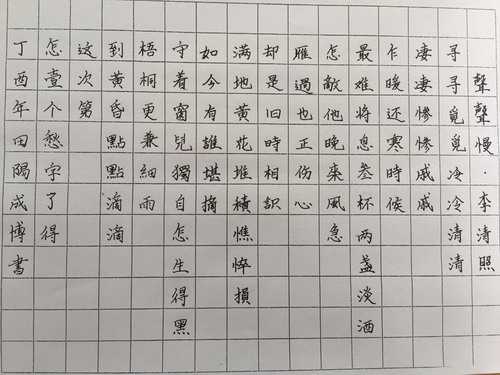 聲聲慢·李清照
尋尋覓覓冷冷清清
凄凄慘慘戚戚
乍暖还寒時候
最难将息叁杯两盏淡酒
怎敵他晚来風急
雁過也正伤心
却是旧時相識
满地黄花堆積憔悴損
如今有誰堪摘
守着窗兒獨自怎生得黑
梧桐更兼細雨
到黄昏點點滴滴
这次第
怎壹个愁字了得
丁酉年田陽成博書